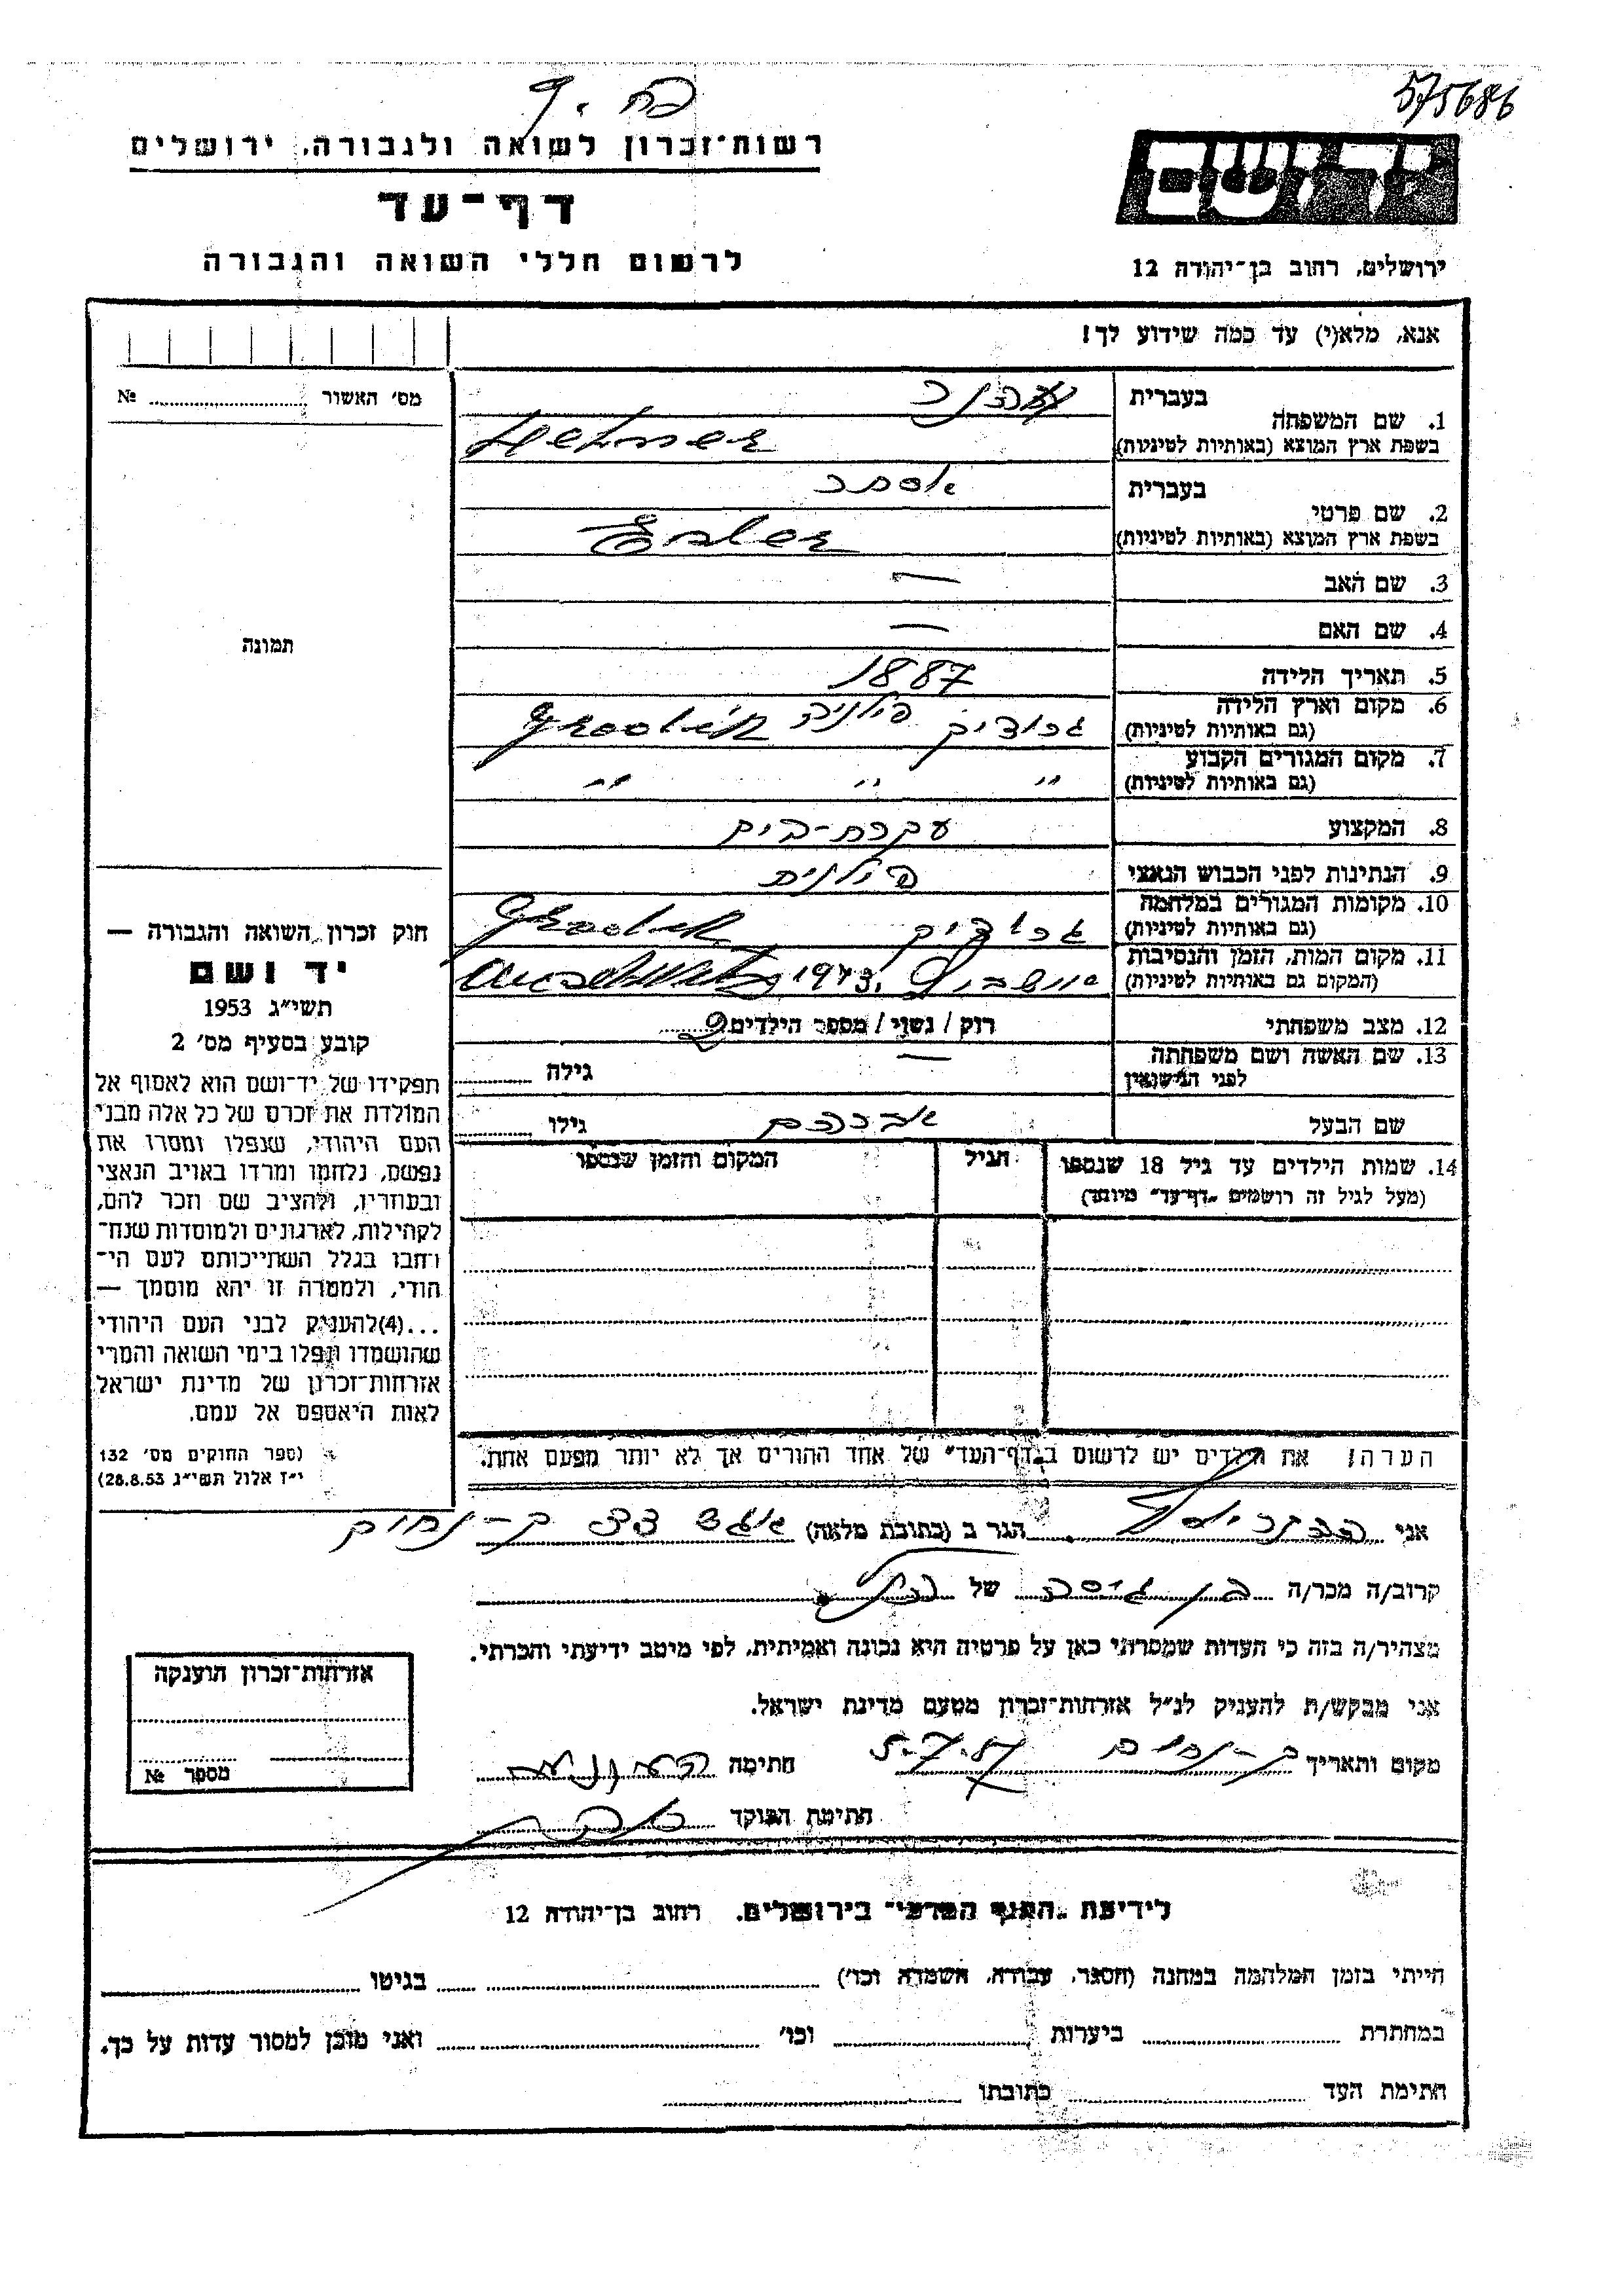 575686
רשות־זכרון לשואה ולגבורה, ירושלים
יד ושם
דף־עד
לרשום חללי השואה והגבורה
ירושלים, רחוב בן־יהודה 12
אנא, מלא(י) עד כמה שידוע לך!
מס׳ האשור № ........
1. שם המשפחה
בעברית
בשפת ארץ המוצא (באותיות לטיניות)
2. שם פרטי
בעברית אסתר
בשפת ארץ המוצא (באותיות לטיניות) Ester
3. שם האב —
4. שם האם —
5. תאריך הלידה 1887
6. מקום וארץ הלידה
(גם באותיות לטיניות) גרודיק פולניה Grodek
7. מקום המגורים הקבוע
(גם באותיות לטיניות) " " "
8. המקצוע עקרת-בית
9. הנתינות לפני הכבוש הנאצי פולנית
10. מקומות המגורים במלחמה
(גם באותיות לטיניות) גרודיק Grodek
11. מקום המות, הזמן והנסיבות
(המקום גם באותיות לטיניות) אושביץ 1943 Auschwitz
12. מצב משפחתי רווק / נשוי / מספר הילדים
13. שם האשה ושם משפחתה
לפני הנישואין — גילה
שם הבעל אברהם גילו
14. שמות הילדים עד גיל 18 שנספו
(מעל לגיל זה רושמים „דף־עד״ מיוחד)
הגיל
המקום והזמן שנספו
הערה! את הילדים יש לרשום ב„דף־העד״ של אחד ההורים אך לא יותר מפעם אחת.
תמונה
חוק זכרון השואה והגבורה —
יד ושם
תשי״ג 1953
קובע בסעיף מס׳ 2
תפקידו של יד־ושם הוא לאסוף אל
המולדת את זכרם של כל אלה מבני
העם היהודי, שנפלו ומסרו את
נפשם, נלחמו ומרדו באויב הנאצי
ובעוזריו, ולהציב שם וזכר להם,
לקהילות, לארגונים ולמוסדות שנח־
רבו בגלל השתייכותם לעם הי־
הודי, ולמטרה זו יהא מוסמך —
...(4)להעניק לבני העם היהודי
שהושמדו ונפלו בימי השואה והמרי
אזרחות־זכרון של מדינת ישראל
לאות היאספם אל עמם.
(ספר החוקים מס׳ 132
י״ז אלול תשי״ג 28.8.53)
אני הגר ב (כתובת מלאה)
קרוב/ה מכר/ה של
מצהיר/ה בזה כי העדות שמסרתי כאן על פרטיה היא נכונה ואמיתית, לפי מיטב ידיעתי והכרתי.
אני מבקש/ת להעניק לנ״ל אזרחות־זכרון מטעם מדינת ישראל.
מקום ותאריך 5-7.57 חתימה
חתימת הפוקד
אזרחות־זכרון הוענקה
מספר №
לידיעת „הסניף המרכזי״ בירושלים, רחוב בן־יהודה 12
הייתי בזמן המלחמה במחנה (הסגר, עבודה, השמדה וכו׳) בגיטו
במחתרת ביערות וכו׳ ואני מוכן למסור עדות על כך.
חתימת העד כתובתו